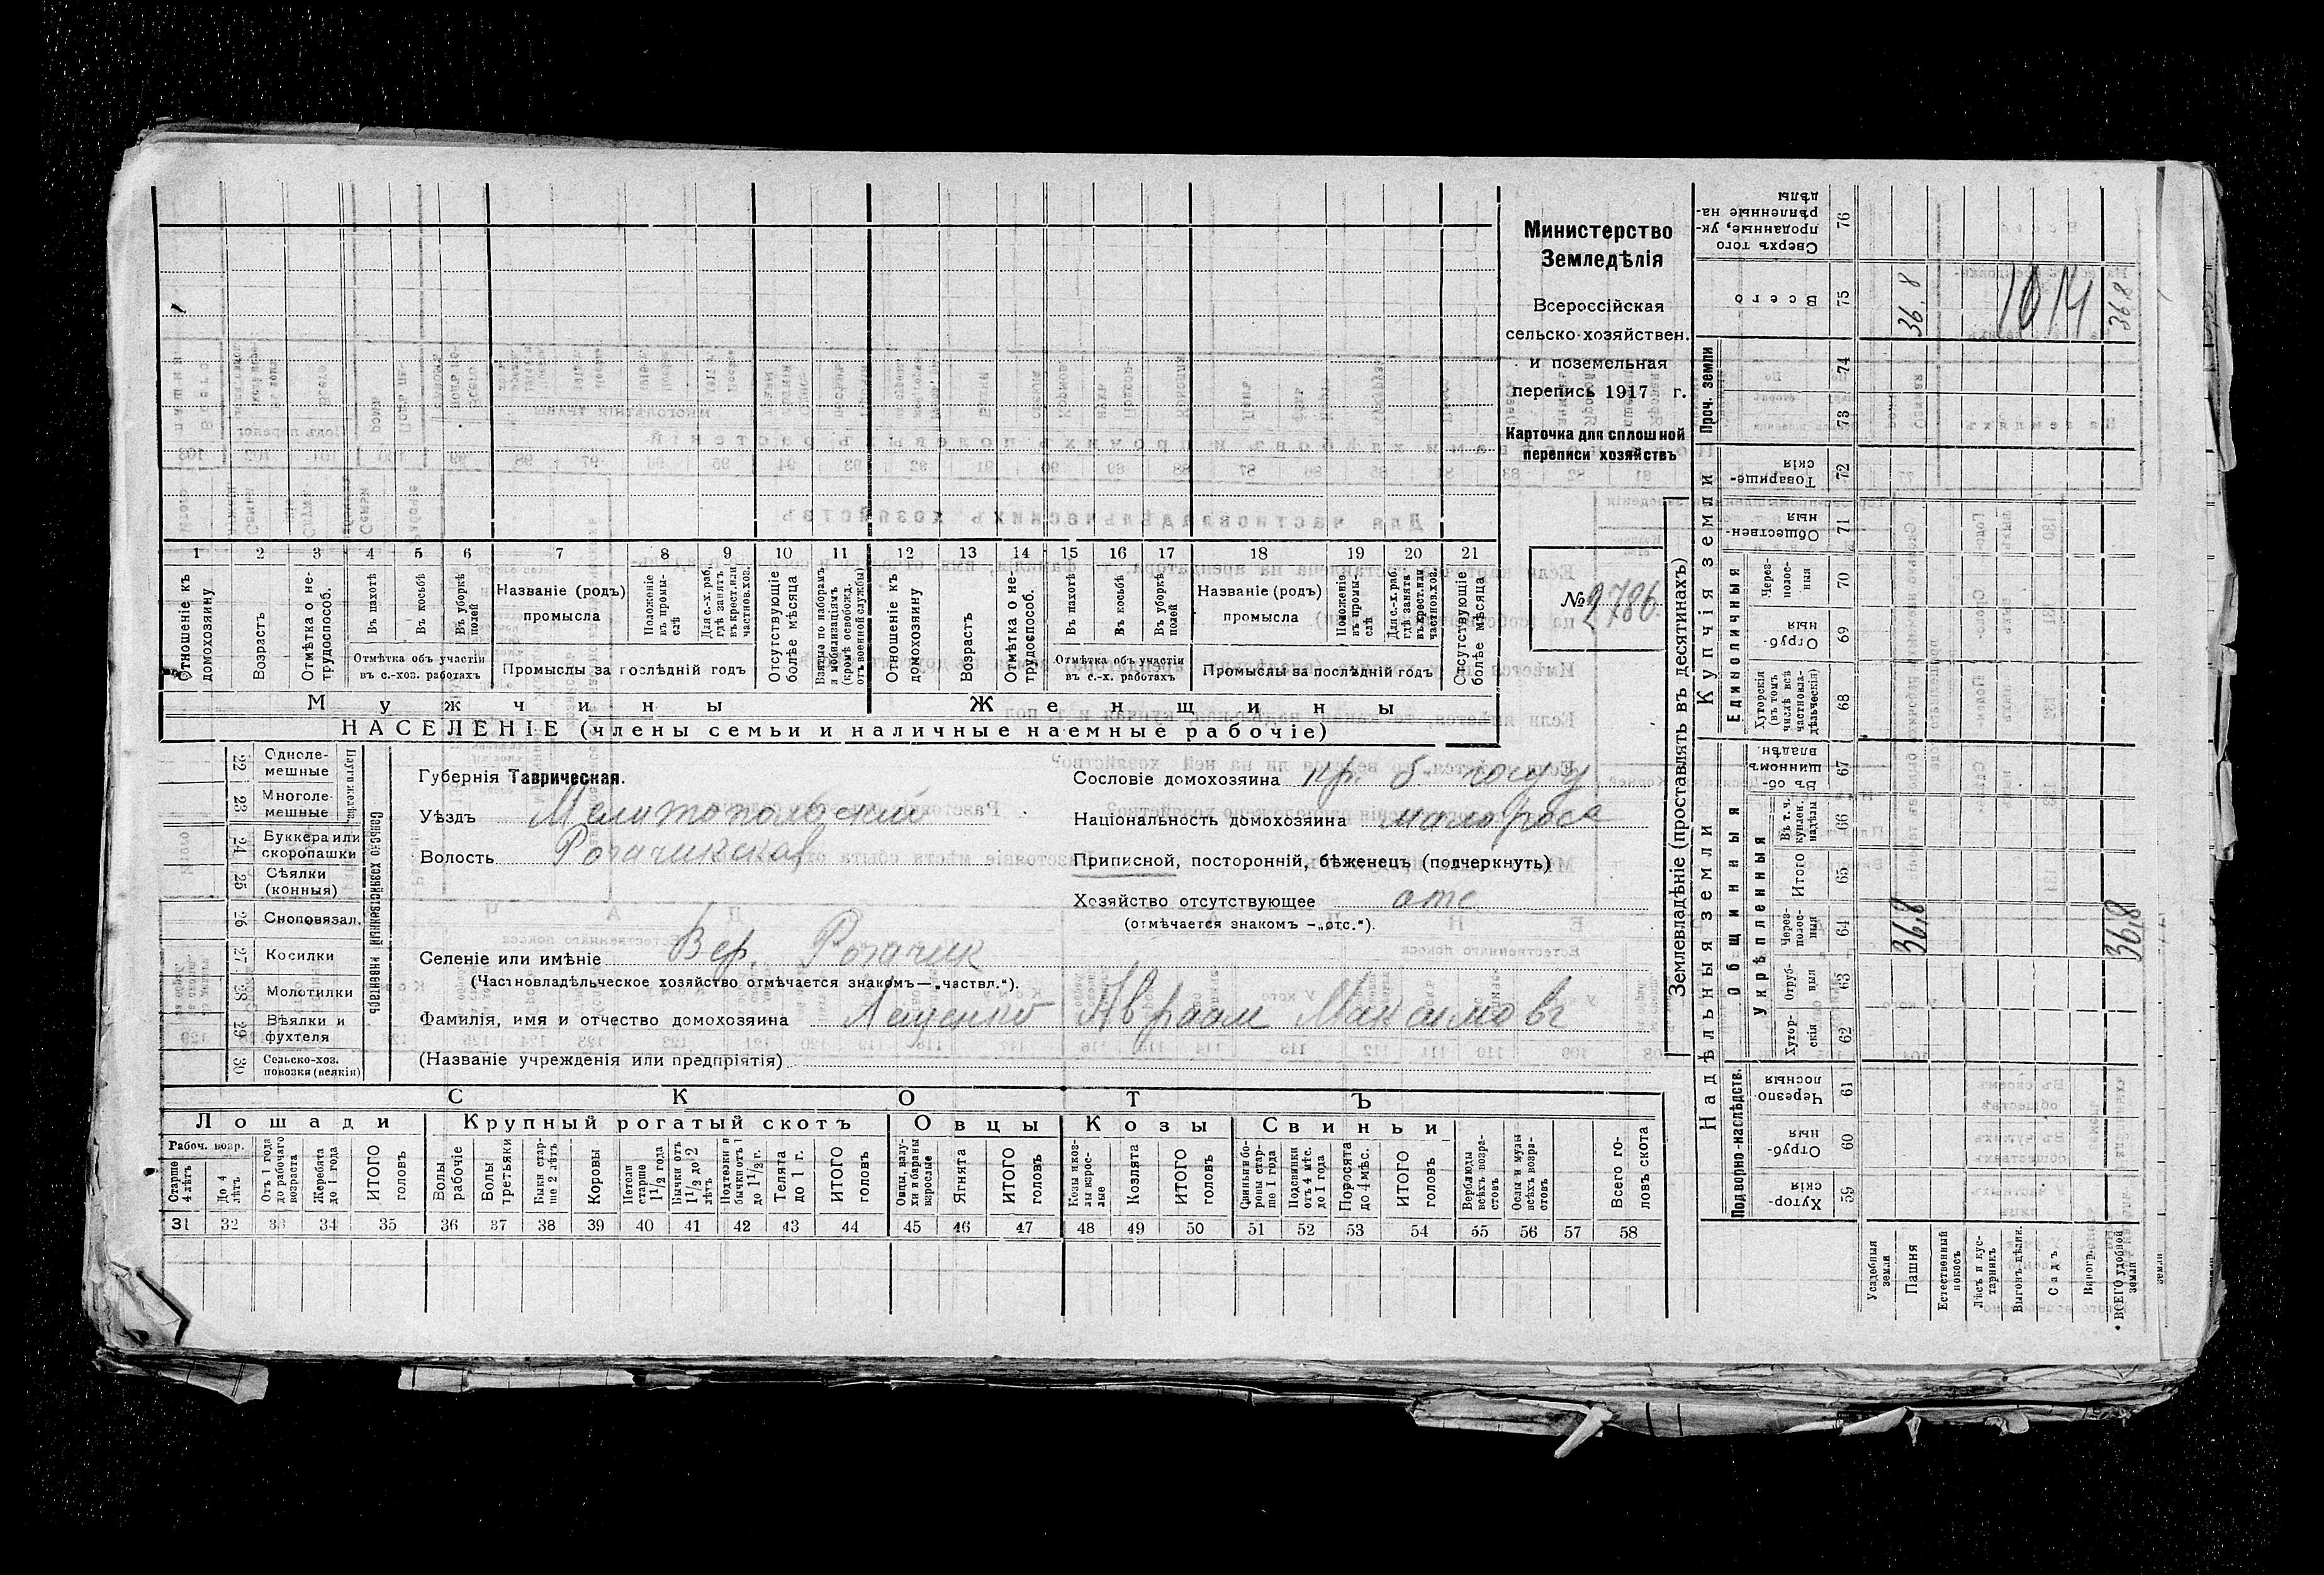 Министерство
Земледѣлія
Всероссійская
сельско-хозяйствен.
и поземельная
перепись 1917 г.
Карточка для сплошной
переписи хозяйствъ
№ 2786
1 2 3 4 5 6 7 8 9 10 11 12 13 14 15 16 17 18 19 20 21
Отношеніе къ домохозяину
Возрастъ
Отмѣтка о не-трудоспособ.
Въ пахотѣ
Въ косьбѣ
Въ уборкѣ полей
Отмѣтка объ участіи въ с.-хоз. работахъ
Названіе (родъ) промысла
Положеніе въ промы-слѣ
Для с.-х. раб. гдѣ занятъ въ крест. или частнов. хоз.
Промыслы за послѣдній годъ
Отсутствующіе болѣе мѣсяца
Взятые по наборамъ и мобилизаціямъ (кромѣ освобожд. отъ военной службы)
Отношеніе къ домохозяину
Возрастъ
Отмѣтка о не-трудоспособ.
Въ пахотѣ
Въ косьбѣ
Въ уборкѣ полей
Отмѣтка объ участіи въ с.-х. работахъ
Названіе (родъ) промысла
Положеніе въ промы-слѣ
Для с.-х. раб. гдѣ занята въ крест. или частнов. хоз.
Промыслы за послѣдній годъ
Отсутствующіе болѣе мѣсяца
Мужчины
Женщины
НАСЕЛЕНІЕ (члены семьи и наличные наемные рабочіе)
22 Одноле-мешные
23 Многоле-мешные
24 Буккера или скоропашки
25 Сѣялки (конныя)
26 Сноповязал.
27 Косилки
28 Молотилки
29 Вѣялки и фухтеля
30 Сельско-хоз. повозки (всякія)
Сельско хозяйственный инвентарь
Губернія Таврическая.
Уѣздъ Мелитопольский
Волость Рогачикская
Сословіе домохозяина кр. б. госуд
Національность домохозяина малоросс
Приписной, посторонній, бѣженецъ (подчеркнуть)
Хозяйство отсутствующее отс
(отмѣчается знакомъ —„отс.“).
Селеніе или имѣніе Вер. Рогачик
(Частновладѣльческое хозяйство отмѣчается знакомъ—„частвл.“).
Фамилія, имя и отчество домохозяина Лещенко Авраам Максимовъ
(Названіе учрежденія или предпріятія)
СКОТЪ
Лошади Крупный рогатый скотъ Овцы Козы Свиньи
Рабоч. возр.
Старше 4 лѣтъ
До 4 лѣтъ
Отъ 1 года до рабочаго возраста
Жеребята до 1 года
ИТОГО головъ
Волы рабочіе
Волы третьяки
Быки стар-ше 2 лѣтъ
Коровы
Нетели старше 1 1/2 года
Бычки отъ 1 1/2 до 2 лѣтъ
Подтелки и бычки отъ 1 до 1 1/2 г.
Телята до 1 г.
ИТОГО головъ
Овцы, валу-хи и бараны взрослые
Ягнята
ИТОГО головъ
Козы и коз-лы взрос-лые
Козлята
ИТОГО головъ
Свиньи и бо-ровы стар-ше 1 года
Подсвинки отъ 4 мѣс. до 1 года
Поросята до 4 мѣс.
ИТОГО головъ
Верблюды всѣхъ возра-стовъ
Ослы и мулы всѣхъ возра-стовъ
Всего го-ловъ скота
31 32 33 34 35 36 37 38 39 40 41 42 43 44 45 46 47 48 49 50 51 52 53 54 55 56 57 58
Землевладѣніе (проставлять въ десятинахъ)
Купчія земли
Надѣльныя земли
Проч. земли
Единоличныя
Общинныя
Укрѣпленныя
Подворно-наслѣдств.
Сверхъ того проданные, ук-рѣпленные на-дѣлы 76
Всего 75 36.8 1014 368
74
73
Товарище-скія 72
Обществен-ныя 71
Через-полос-ныя 70
Отруб-ныя 69
Хуторскія (въ томъ числѣ всѣ частновла-дѣльческія) 68
Въ об-щинномъ владѣн. 67
Въ т. ч. куплен. надѣлы 66
Итого 65
Через-полос-ныя 64 36,8 36,8
Отруб-ныя 63
Хутор-скія 62
Черезпо-лосныя 61
Отруб-ныя 60
Хутор-скія 59
Усадебныя земли
Пашня
Естественный покосъ
Лѣсъ и кус-тарникъ
Выгонъ-цѣлик.
Садъ
Виногр.
ВСЕГО удобной земли